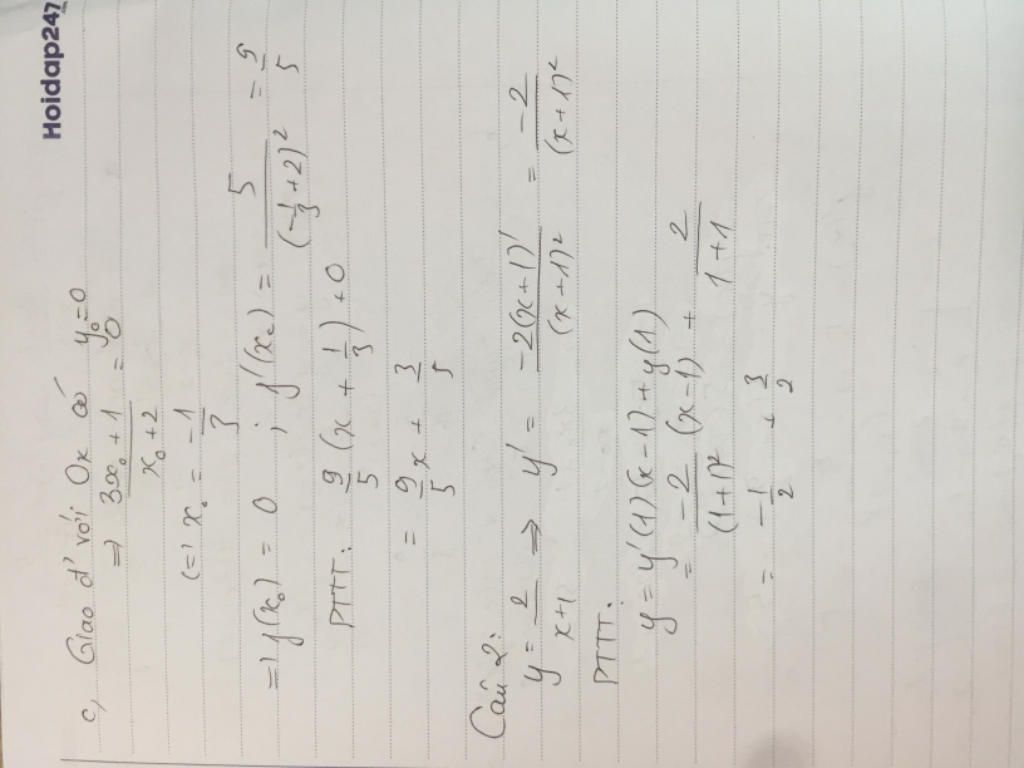 Hoidap247
c, Giao đ' với Ox có y₀=0
=> \frac{3x₀+1}{x₀+2} = 0
(=) x₀ = -\frac{1}{3}
=) y(x₀) = 0 ; y'(x₀) = \frac{5}{(-\frac{1}{3}+2)²} = \frac{9}{5}
PTTT: \frac{9}{5}(x + \frac{1}{3}) + 0
= \frac{9}{5}x + \frac{3}{5}
Câu 2:
y = \frac{2}{x+1} => y' = \frac{-2(x+1)'}{(x+1)²} = \frac{-2}{(x+1)²}
PTTT:
y = y'(1)(x-1) + y(1)
= \frac{-2}{(1+1)²}(x-1) + \frac{2}{1+1}
= -\frac{1}{2} + \frac{3}{2}